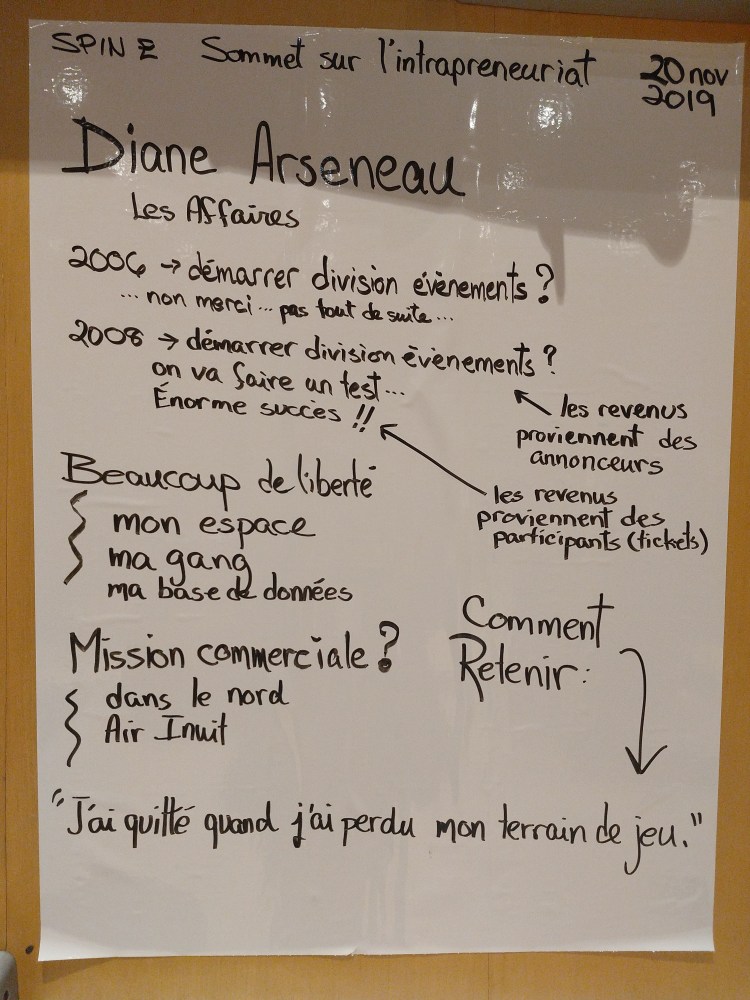 SPIN E Sommet sur l'intrapreneuriat
20 nov
2019
Diane Arseneau
Les Affaires
2006 → démarrer division évènements ?
... non merci ... pas tout de suite ...
2008 → démarrer division évènements ?
on va faire un test ...
Énorme succès !!
les revenus
proviennent des
annonceurs
les revenus
proviennent des
participants (tickets)
Beaucoup de liberté
mon espace
ma gang
ma base de données
Mission commerciale ?
dans le nord
Air Inuit
Comment
Retenir :
"J'ai quitté quand j'ai perdu mon terrain de jeu."